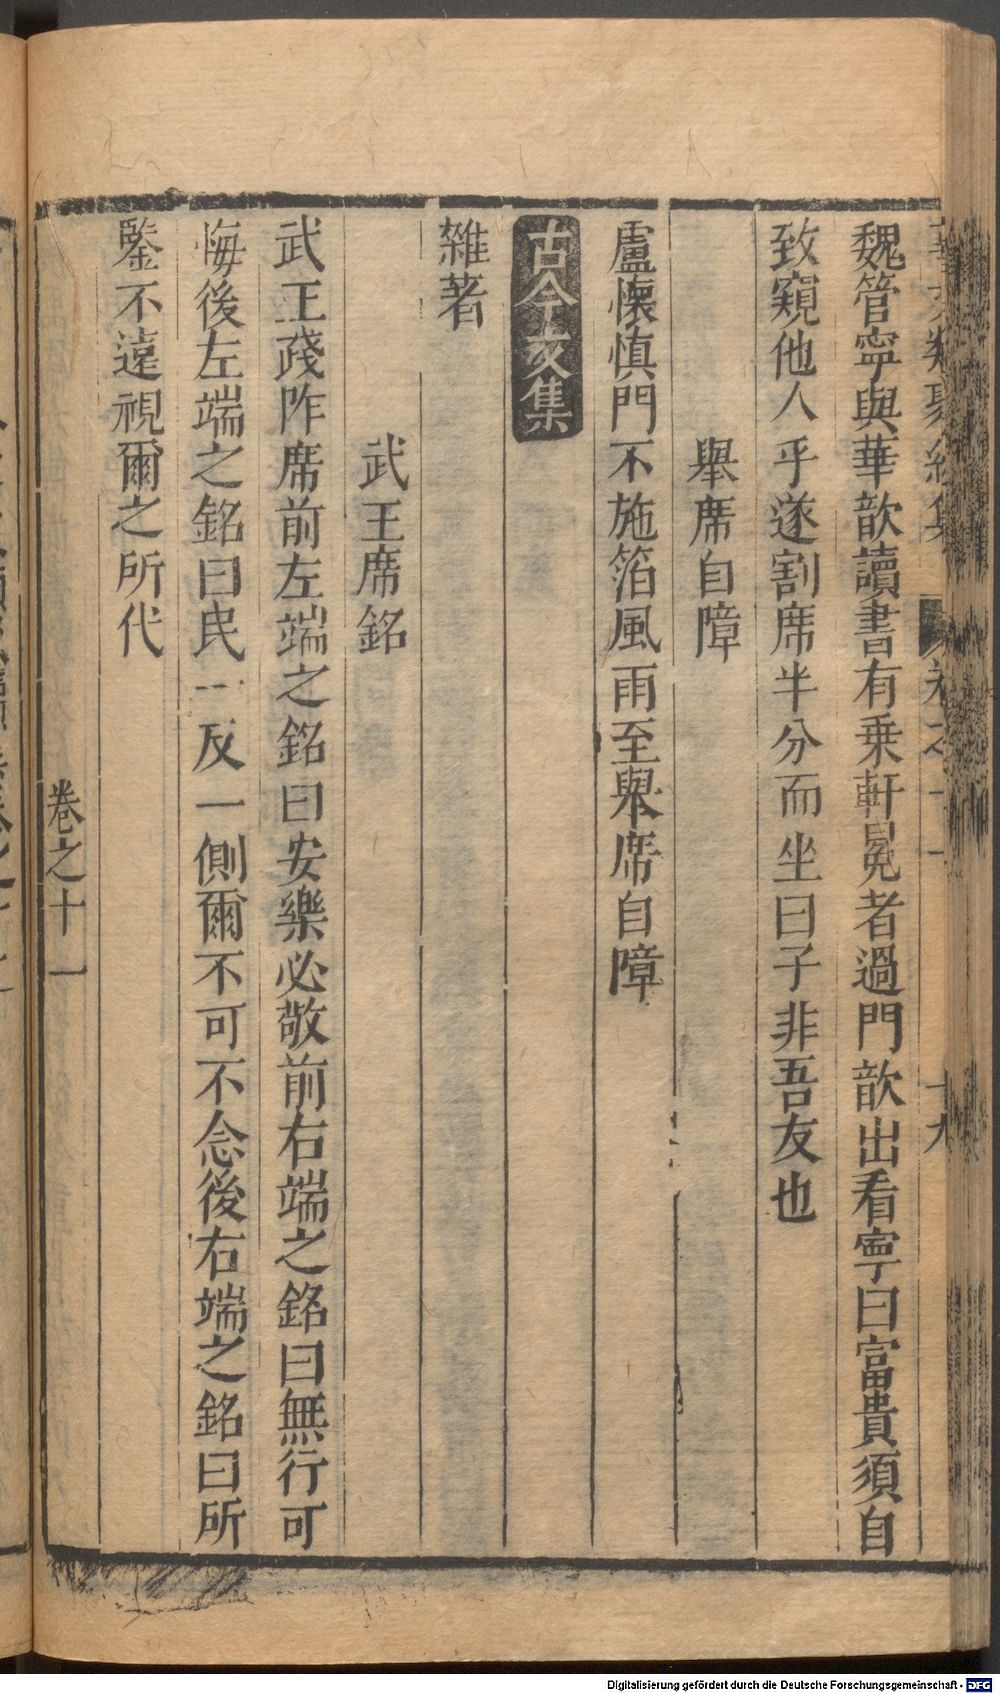 魏管寧與華歆讀書有乗軒冕者過門歆出看寧曰富貴須自
致窺他人乎遂割席半分而坐曰子非吾友也
舉席自障
盧懷慎門不施箔風雨至舉席自障
古今文集
雜著
武王席銘
武王踐阼席前左端之銘曰安樂必敬前右端之銘曰無行可
悔後左端之銘曰民一反一側爾不可不念後右端之銘曰所
鑒不遠視爾之所代
卷之十一
十九
Digitalisierung gefördert durch die Deutsche Forschungsgemeinschaft - DFG